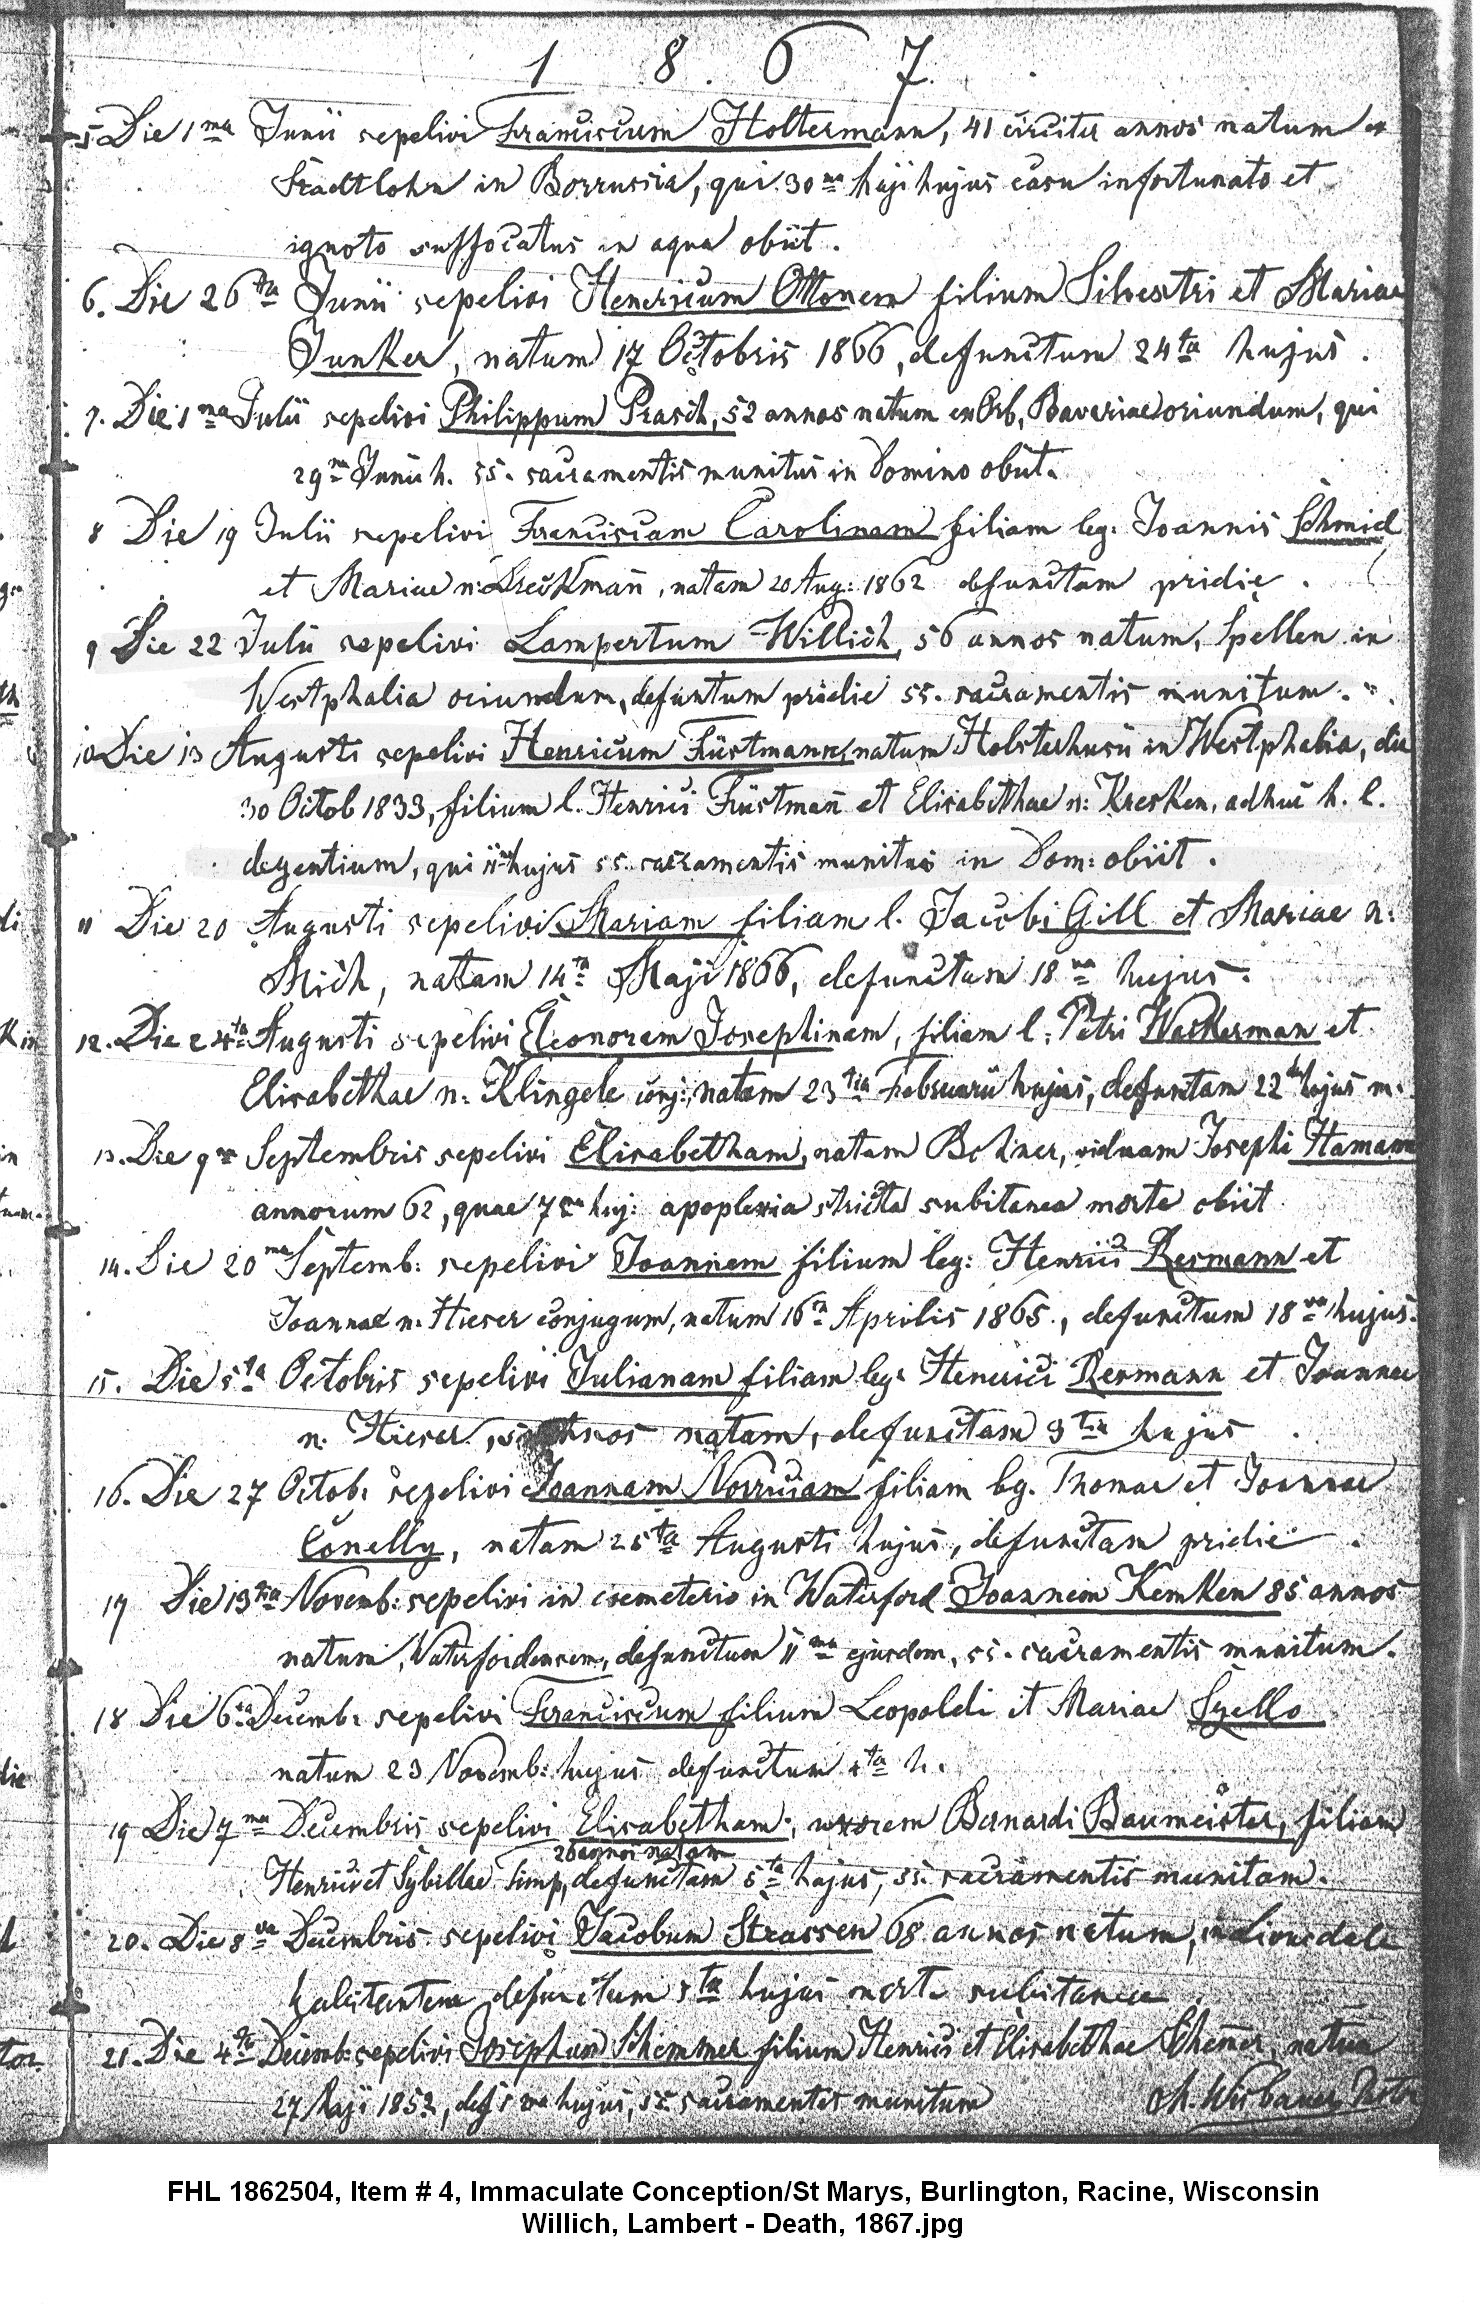 1 8 6 7.
5. Die 1ma Junii sepelivi Franciscum Holtermann, 41 circiter annos natum ex
Stadtlohn in Borrussia, qui 30ma Maji hujus casu infortunato et
ignoto suffocatus in aqua obiit.
6. Die 26ta Junii sepelivi Henericum Ottonem filium Silvestri et Mariae
Junker, natum 17 Octobris 1866, defunctum 24ta hujus.
7. Die 1ma Julii sepelivi Philippum Prasch, 52 annos natum ex Orb, Bavariae oriundum, qui
29na Junii h. ss. sacramentis munitus in Domino obiit.
8 Die 19 Julii sepelivi Franciscam Carolinam filiam leg: Joannis Schmid
et Mariae n: natam 20 Aug: 1862 defunctam pridie.
9 Die 22 Julii sepelivi Lampertum Willich, 56 annos natum, Spellen in
Westphalia oriundum, defuntum pridie ss. sacramentis munitum.
10 Die 13 Augusti sepelivi Henricum Früstmann, natum Holsterhusii in Westphalia, die
30 Octob 1833, filium l. Henrici Früstmann et Elisabethae n: Kresken, adhuc h. l.
degentium, qui 11ma hujus ss. sacramentis munitus in Dom: obiit.
11 Die 20 Augusti sepelivi Mariam filiam l. Jacobi Gill et Mariae n:
Mich, natam 14ta Maji 1866, defunctam 18va hujus.
12. Die 24ta Augusti sepelivi Eleonoram Josephinam, filiam l: Petri Wackerman et
Elisabethae n: Klingele conj:, natam 23tia Februarii hujus, defunctam 22da hujus m.
13. Die 9na Septembris sepelivi Elisabetham, natam viduam Josephi Hamann
annorum 62, quae 7ma huj: apoplexia stricta subitanea morte obiit
14. Die 20ma Septemb: sepelivi Joannem filium leg: Henrici Rermann et
Joannae n. Hieser conjugum, natum 16ta Aprilis 1865., defunctum 18va hujus.
15. Die 5ta Octobris sepelivi Julianam filiam leg: Henrici Rermann et Joannae
n. Hieser, annos natam, defunctam 3tia hujus.
16. Die 27 Octob: sepelivi Joannam filiam leg. Thomae et Joannae
Conelly, natam 25ta Augusti hujus, defunctam pridie.
17 Die 13tia Novemb: sepelivi in coemeterio in Waterford Joannem Kemken 85 annos
natum, Waterfordensem, defunctum 11ma ejusdem, ss. sacramentis munitum.
18 Die 6ta Decemb: sepelivi Franciscum filium Leopoldi et Mariae Szello
natum 23 Novemb: hujus defunctum 4ta h.
19 Die 7ma Decembris sepelivi Elisabetham, uxorem Bernardi Baumeister, filiam
26 annos natam
Henrici et Sybillae Timp, defunctam 5ta hujus, ss. sacramentis munitam.
20. Die 8va Decembris sepelivi Jacobum Strassen 68 annos natum, in Lionsdale
habitantem, defunctum 5ta hujus morte subitanea.
21. Die 4ta Decemb: sepelivi Josephum Schemmer filium Henrici et Elisabethae Schemer, natum
27 Maji 1852, def: hujus, ss. sacramentis munitum M. Wisbauer, Rector
FHL 1862504, Item # 4, Immaculate Conception/St Marys, Burlington, Racine, Wisconsin
Willich, Lambert - Death, 1867.jpg